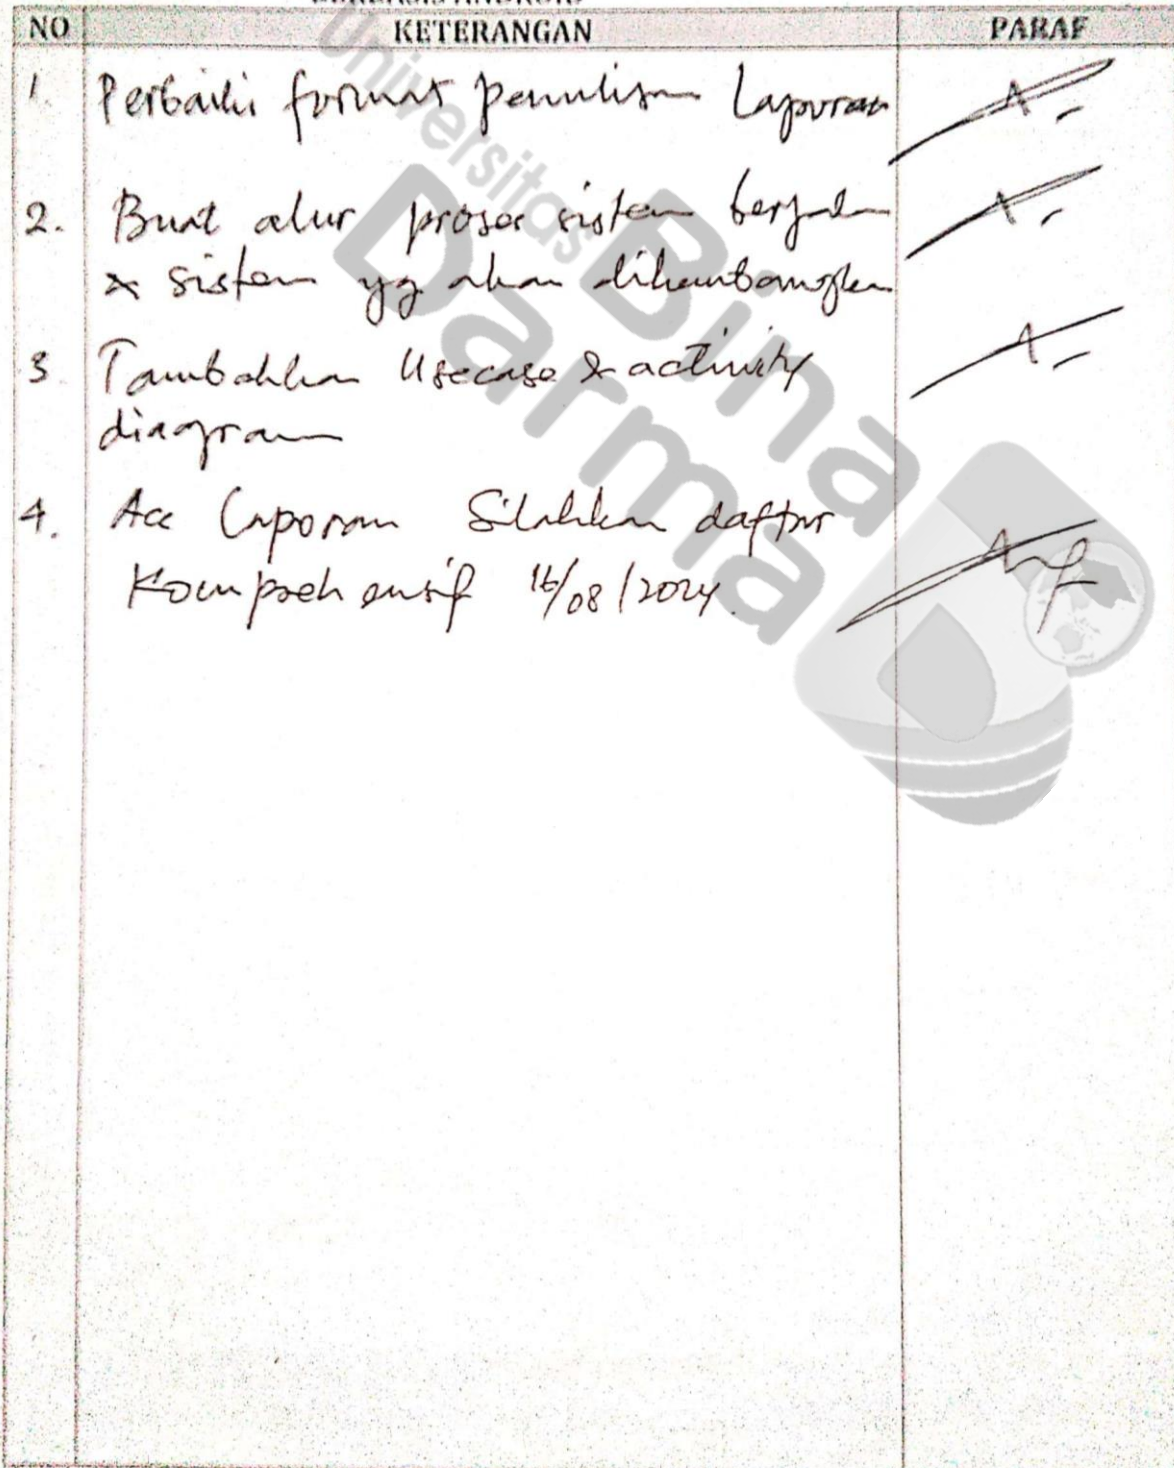 BERBASIS ANDROID
NO KETERANGAN PARAF
1. Perbaiki format penulisan Laporan
2. Buat alur proses sistem berjalan
& sistem yg akan dikembangkan
3. Tambahkan Usecase & activity
diagram
4. Acc Laporan Silahkan daftar
Komprehensif 16/08/2024.
Universitas
Bina
Darma